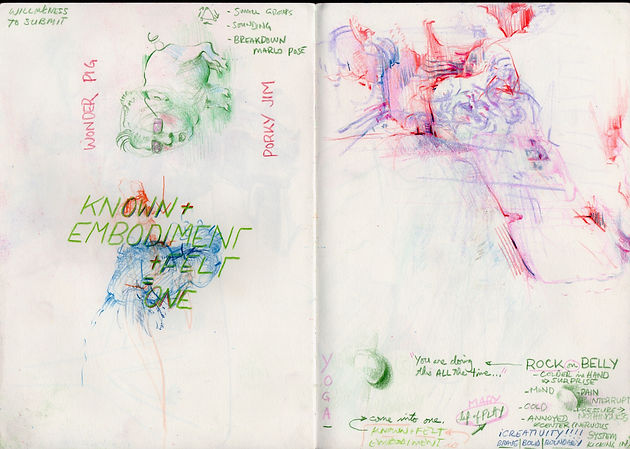 WILLINGNESS
TO SUBMIT
- SMALL GROUPS
- SOUNDING
- BREAKDOWN
MARLO POSE
WONDER PIG
PORKY JIM
KNOWN +
EMBODIMENT
+ FELT
=
ONE
YOGA
"You are doing
this All the time..."
ROCK on BELLY
- COLDER in HAND
SURPRISE
- MIND
- PAIN
INTERRUPT
- COLD
PRESSURE
- ANNOYED
CENTER
NERVOUS
SYSTEM
KICKING IN
MARY
of PLAY
come into one.
KNOWN + FELT
EMBODIMENT
iCREATIVITY!!!!
BRAVE | BOLD | BOUNDARY